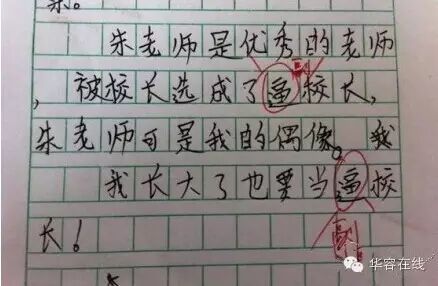 朱老师是优秀的老师
副
，被校长选成了逼校长，
朱老师可是我的偶像。我
我长大了也要当逼校
副
长！
华容在线